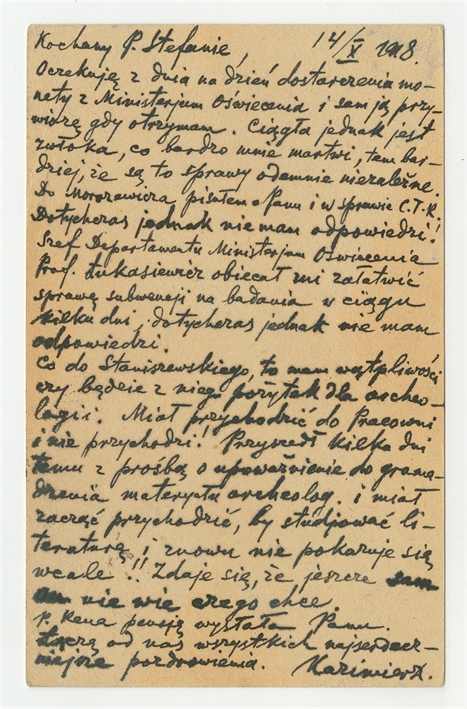 Kochany P. Stefanie, 14/X 1918.
Oczekuję z dnia na dzień dostarczenia mo-
nety z Ministerjum Oświecenia i sam ją przy-
wiozę gdy otrzymam. Ciągła jednak jest
zwłoka, co bardzo mnie martwi, tem bar-
dziej, że są to sprawy odemnie niezależne.
Do Morozewicza pisałem o Panu i w sprawie C.T.R.
Dotychczas jednak nie mam odpowiedzi!
Szef Departamentu Ministerjum Oświecenia
Prof. Łukasiewicz obiecał mi załatwić
sprawę subwencji na badania w ciągu
kilku dni. dotychczas jednak nie mam
odpowiedzi.
Co do Staniszewskiego, to mam wątpliwości
czy będzie z niego pożytek dla archeo-
logii. Miał przychodzić do Pracowni
i nie przychodzi! Przyszedł kilka dni
temu z prośbą o upoważnienie do groma-
dzenia materyału archeolog. i miał
zacząć przychodzić, by studjować li-
teraturę i znowu nie pokazuje się
wcale!! Zdaje się, że jeszcze sam
nie wie czego chce.
P. Rena pensją wysłała Panu.
Łączę od nas wszystkich najserdecz-
niejsze pozdrowienia. Kazimierz.